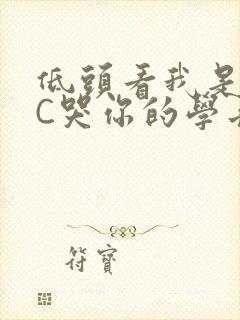 低頭看我是
C哭你的學
符寶